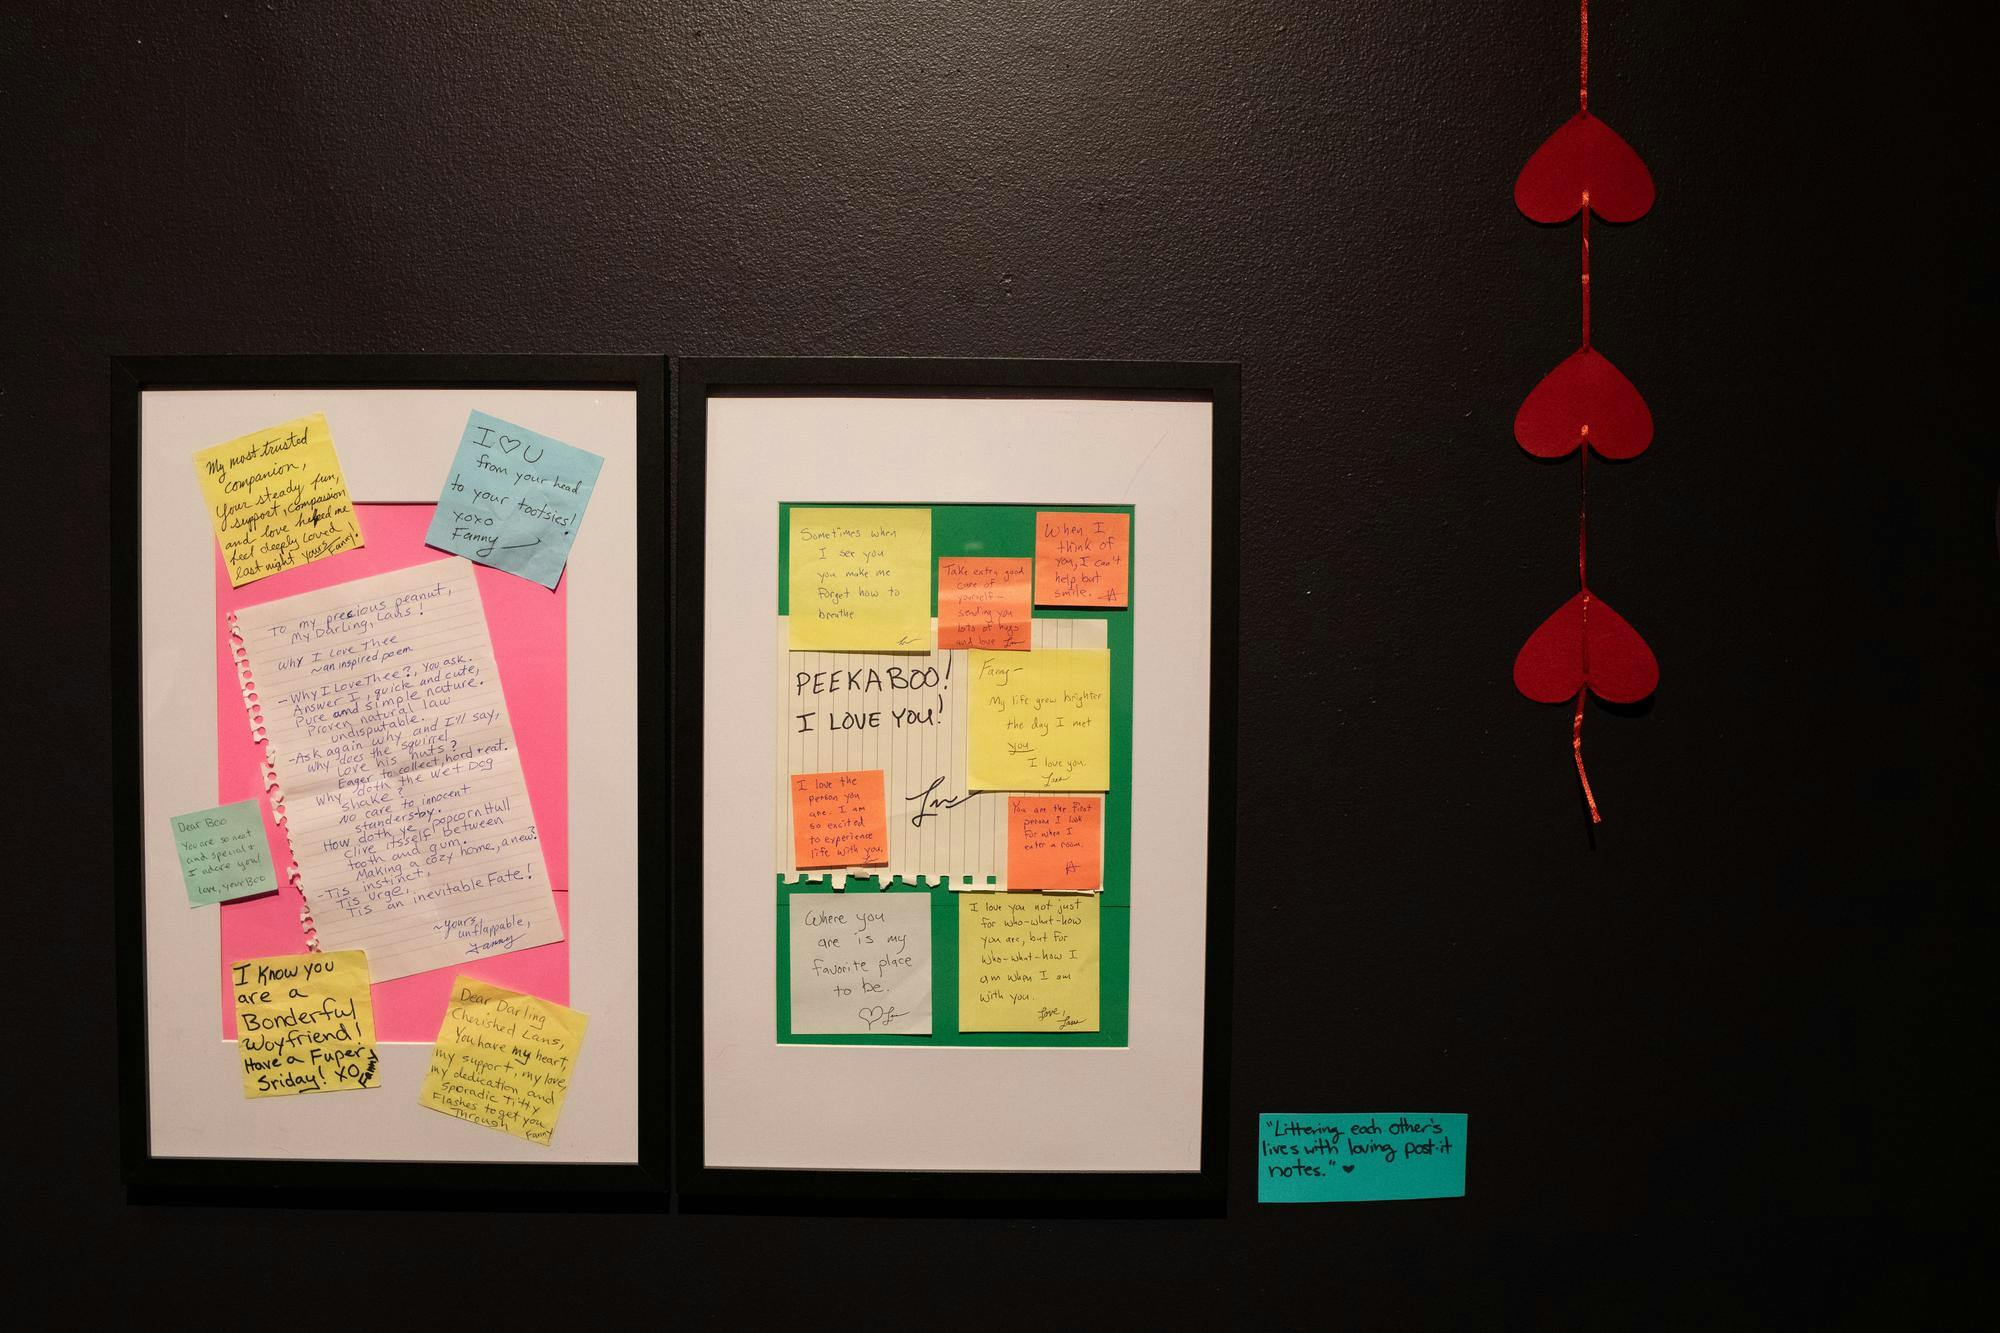 My most trusted
companion,
Your steady fun,
support, compassion
and love helped me
feel deeply loved
last night yours, Fanny!
I ♡ U
from your head
to your tootsies!
xoxo
Fanny
To my precious peanut,
My Darling, Lans!
Why I Love Thee
~an inspired poem
-Why I Love Thee?, you ask.
Answer I, quick and cute,
Pure and simple nature.
Proven natural law
undisputable.
-Ask again why and I'll say,
why does the squirrel
love his nuts?
Eager to collect, hord + eat.
Why doth the Wet Dog
shake?
No care to innocent
standersby.
How doth ye popcorn Hull
clive itsself between
tooth and gum.
Making a cozy home, anew?
-Tis instinct,
Tis urge,
Tis an inevitable Fate!
~yours,
unflappable,
Fanny
Dear Boo
You are so neat
and special +
I adore you!
love, your Boo
I know you
are a
Bonderful
Woyfriend!
Have a Fuper
Sriday! XO
Fanny
Dear Darling
Cherished Lans,
You have my heart,
my support, my love,
my dedication and
Sporadic Titty
Flashes to get you
Through
Fanny
Sometimes when
I see you
you make me
forget how to
breathe
Take extra good
care of
yourself-
sending you
lots of hugs
and love
When I
think of
you, I can't
help but
smile.
PEEKABOO!
I LOVE YOU!
Fanny-
My life grew brighter
the day I met
you
I love you.
Lans
I love the
person you
are. I am
so excited
to experience
life with you.
You are the first
person I look
for when I
enter a room.
Where you
are is my
favorite place
to be.
♡
I love you not just
for who-what-how
you are, but for
who-what-how I
am when I am
with you.
Love,
Lans
"Littering each other's
lives with loving post-it
notes." ♥